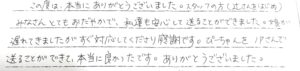 この度は、本当にありがとうございました。スタッフの方(辻さんをはじめ)
みなさんとてもおだやかで、私達も安心して送ることができました。
遅れてきましたがすぐ対応してくださり感謝です。ぴーちゃんを Pさんで
送ることができて、本当に良かったです。ありがとうございました。